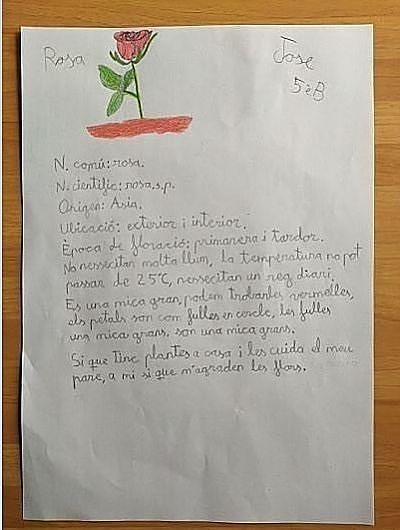 Rosa
Jose
5èB
N. comú: rosa.
N. científic: rosa.s.p.
Origen: Asia.
Ubicació: exterior i interior.
Època de floració: primavera i tardor.
No nessecitan molta llum, la temperatura no pot
passar de 25°C, nessecitan un reg diari.
Es una mica gran, podem trobarles vermelles,
els petals son com fulles en cercle, les fulles
una mica grans, son una mica grans.
Si que tinc plantes a casa i les cuida el meu
pare, a mi si que m'agraden les flors.